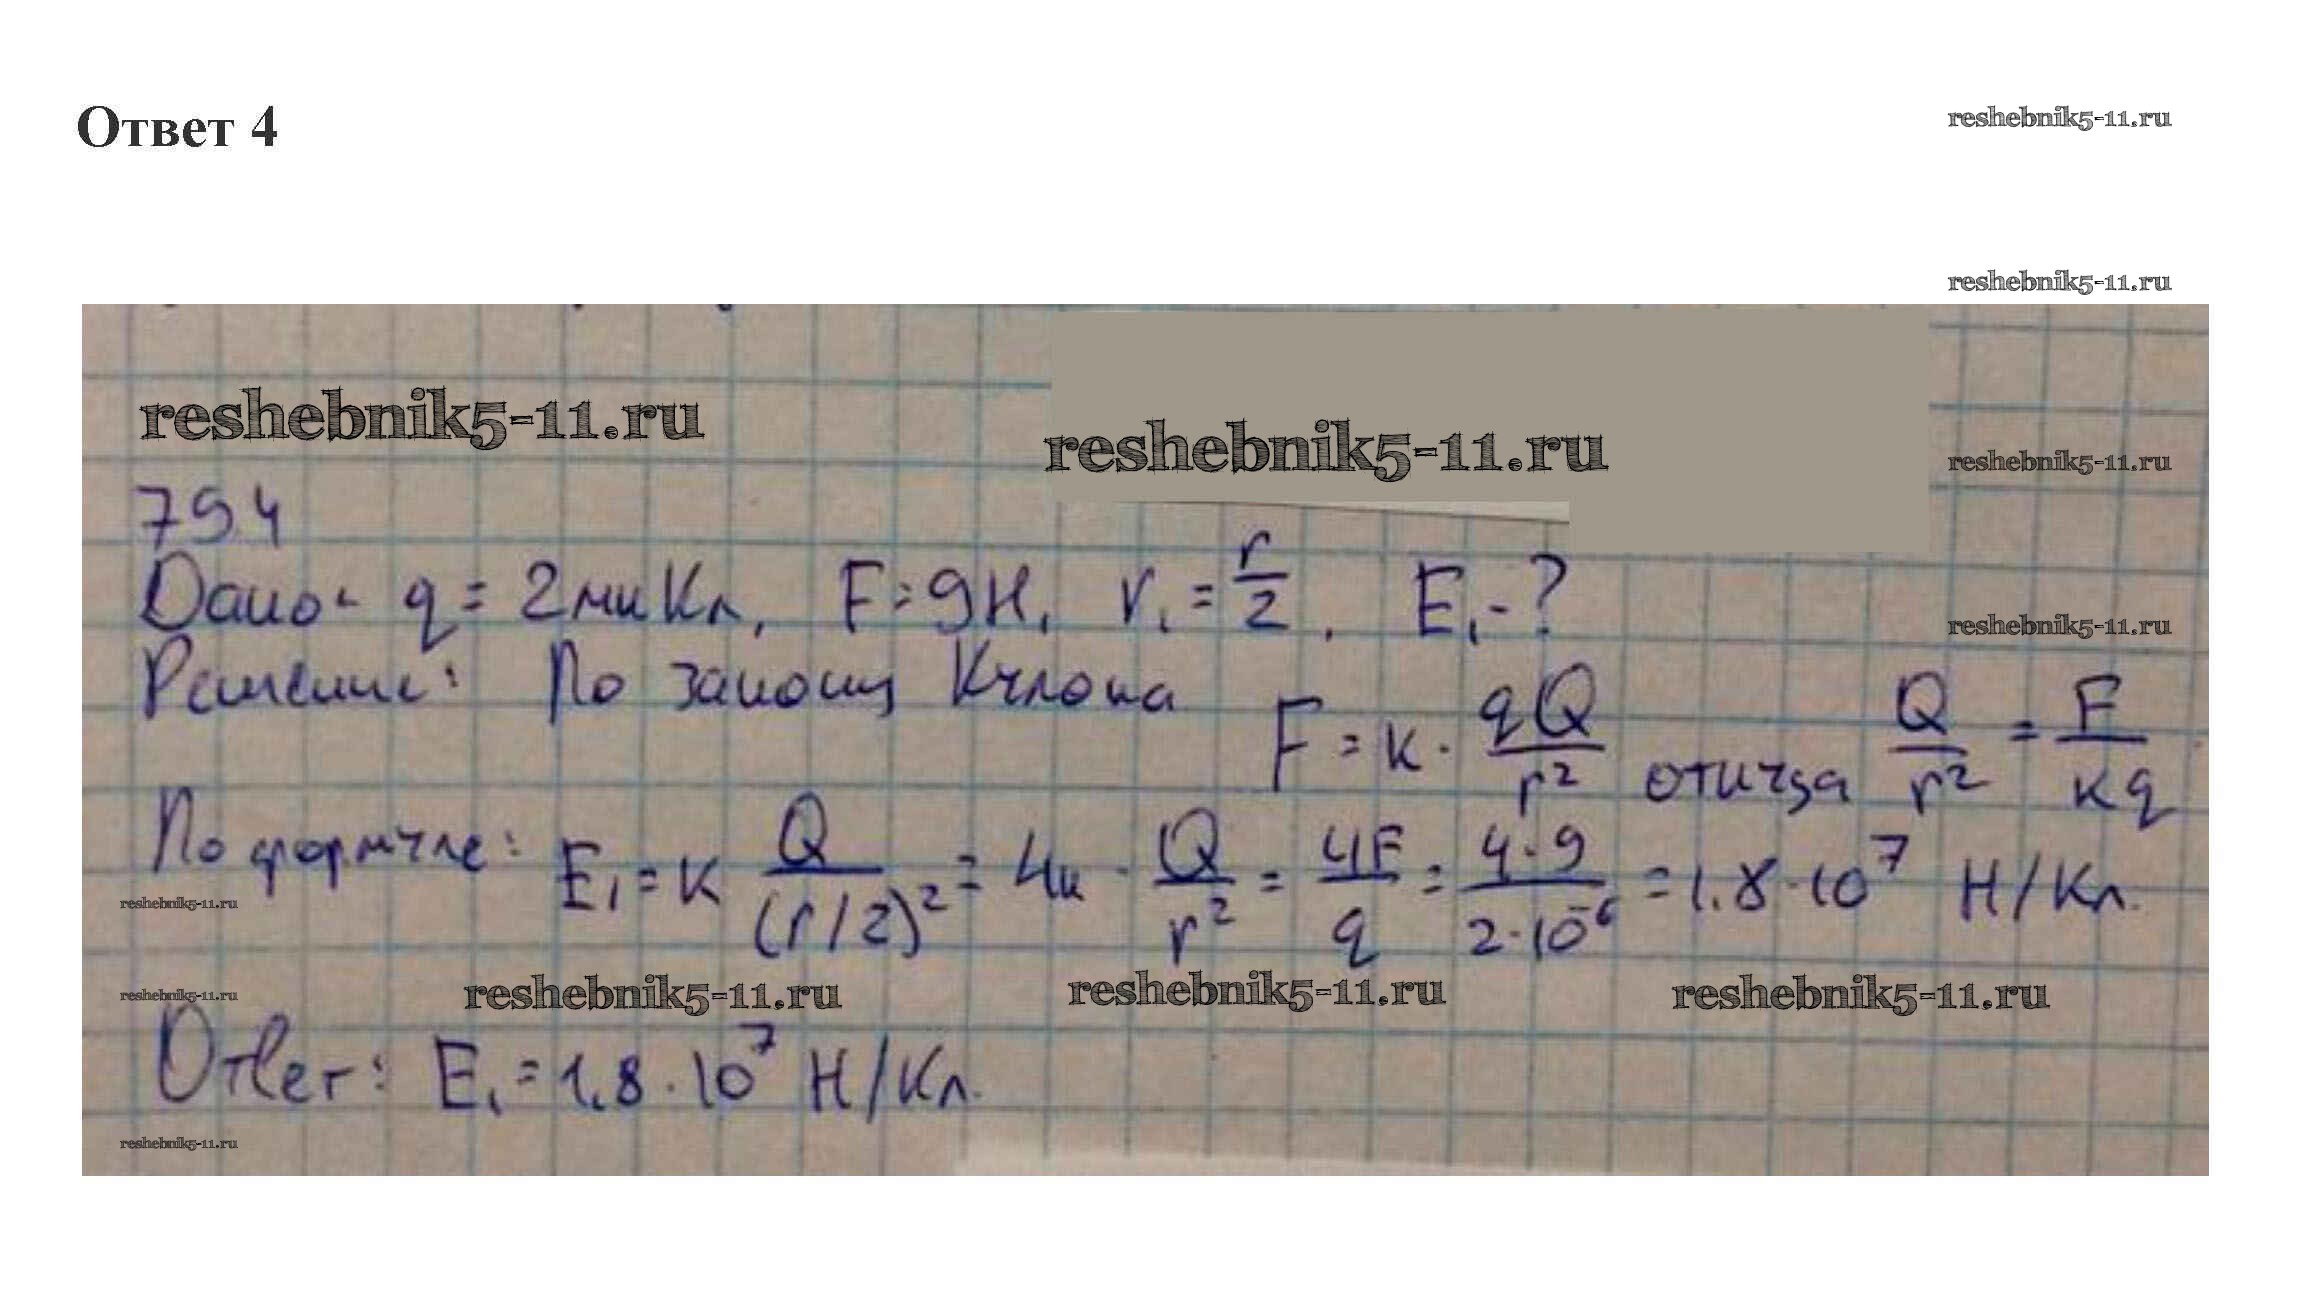 Ответ 4
reshebnik5-11.ru
reshebnik5-11.ru
reshebnik5-11.ru
reshebnik5-11.ru
reshebnik5-11.ru
79.4
Дано: q = 2мкКл, F = 9Н, r₁ = r/2, E₁ - ?
reshebnik5-11.ru
Решение: По закону Кулона F = k · qQ/r² откуда Q/r² = F/kq
По формуле: E₁ = k Q/(r/2)² = 4k · Q/r² = 4F/q = 4·9/2·10⁻⁶ = 1.8·10⁷ Н/Кл.
reshebnik5-11.ru
reshebnik5-11.ru
reshebnik5-11.ru
reshebnik5-11.ru
reshebnik5-11.ru
Ответ: E₁ = 1.8·10⁷ Н/Кл.
reshebnik5-11.ru